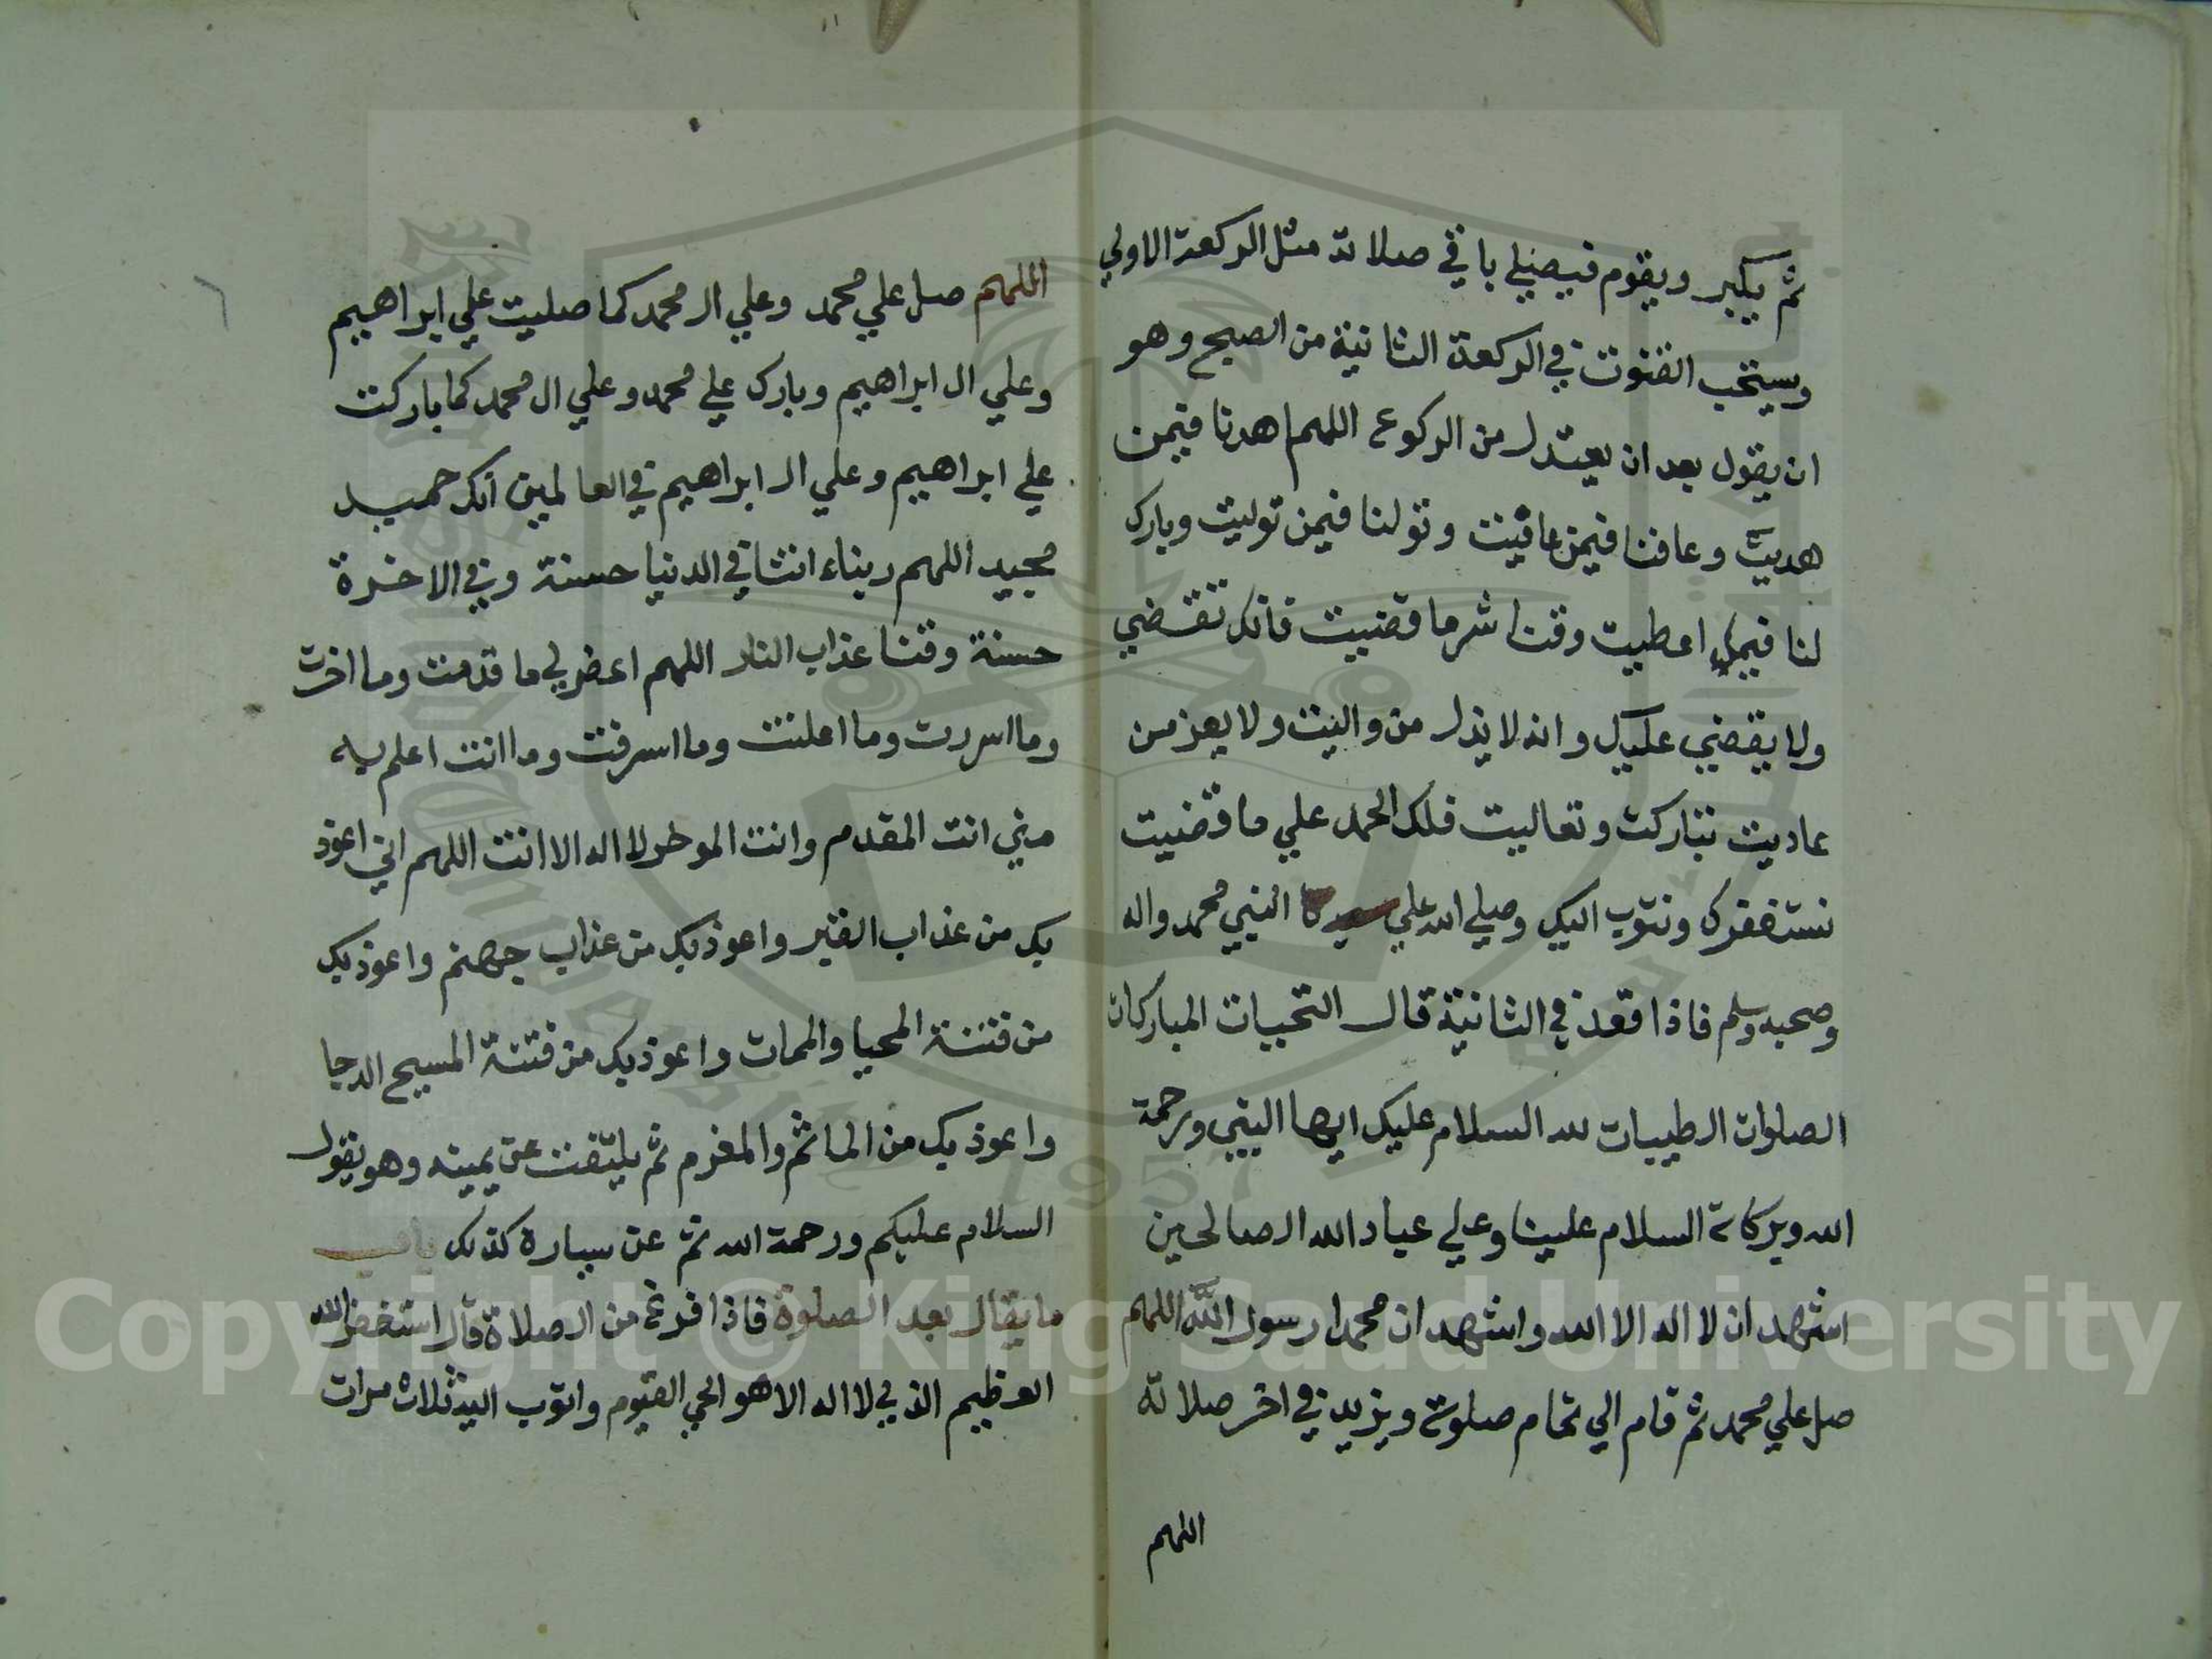 ثم يكبر ويقوم فيصلي باقي صلاته مثل الركعة الاولي
ويستحب القنوت في الركعة الثانية من الصبح وهو
ان يقول بعد ان يعتدل من الركوع اللهم اهدنا فيمن
هديت وعافنا فيمن عافيت وتولنا فيمن توليت وبارك
لنا فيما اعطيت وقنا شر ما قضيت فانك تقضي
ولا يقضي عليك وانه لا يذل من واليت ولا يعز من
عاديت تباركت وتعاليت فلك الحمد علي ما قضيت
نستغفرك ونتوب اليك وصلي الله علي النبي محمد واله
وصحبه وسلم فاذا قعد في الثانية قال التحيات المباركات
الصلوات الطيبات لله السلام عليك ايها النبي ورحمة
الله وبركاته السلام علينا وعلي عباد الله الصالحين
اشهد ان لا اله الا الله واشهد ان محمدا رسول الله اللهم
صل علي محمد ثم قام الي تمام صلوته ويزيد في اخر صلاته
اللهم
٦
اللهم صل علي محمد وعلي ال محمد كما صليت علي ابراهيم
وعلي ال ابراهيم وبارك علي محمد وعلي ال محمد كما باركت
علي ابراهيم وعلي ال ابراهيم في العالمين انك حميد
مجيد اللهم ربناء اتنا في الدنيا حسنة وفي الاخرة
حسنة وقنا عذاب النار اللهم اغفر لي ما قدمت وما اخرت
وما اسررت وما اعلنت وما اسرفت وما انت اعلم به
مني انت المقدم وانت الموخر لا اله الا انت اللهم اني اعوذ
بك من عذاب القبر واعوذ بك من عذاب جهنم واعوذ بك
من فتنة المحيا والممات واعوذ بك من فتنة المسيح الدجا
واعوذ بك من الماثم والمغرم ثم يلتفت عن يمينه وهو يقول
السلام عليكم ورحمة الله ثم عن يساره كذلك باب
ما يقال بعد الصلوة فاذا فرغ من الصلاة قال استغفر الله
العظيم الذي لا اله الا هو الحي القيوم واتوب اليه ثلاث مرات
Copyright © King Saud University
1957